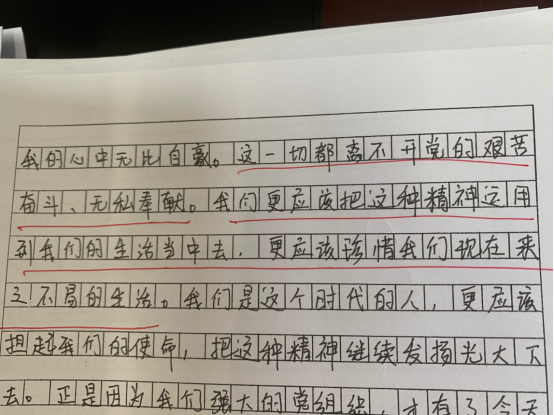 我的心中无比自豪。这一切都离不开党的艰苦
奋斗、无私奉献。我们更应该把这种精神运用
到我们的生活当中去，更应该珍惜我们现在来
之不易的生活。我们是这个时代的人，更应该
担起我们的使命，把这种精神继续发扬光大下
去。正是因为我们强大的党组织，才有了今天